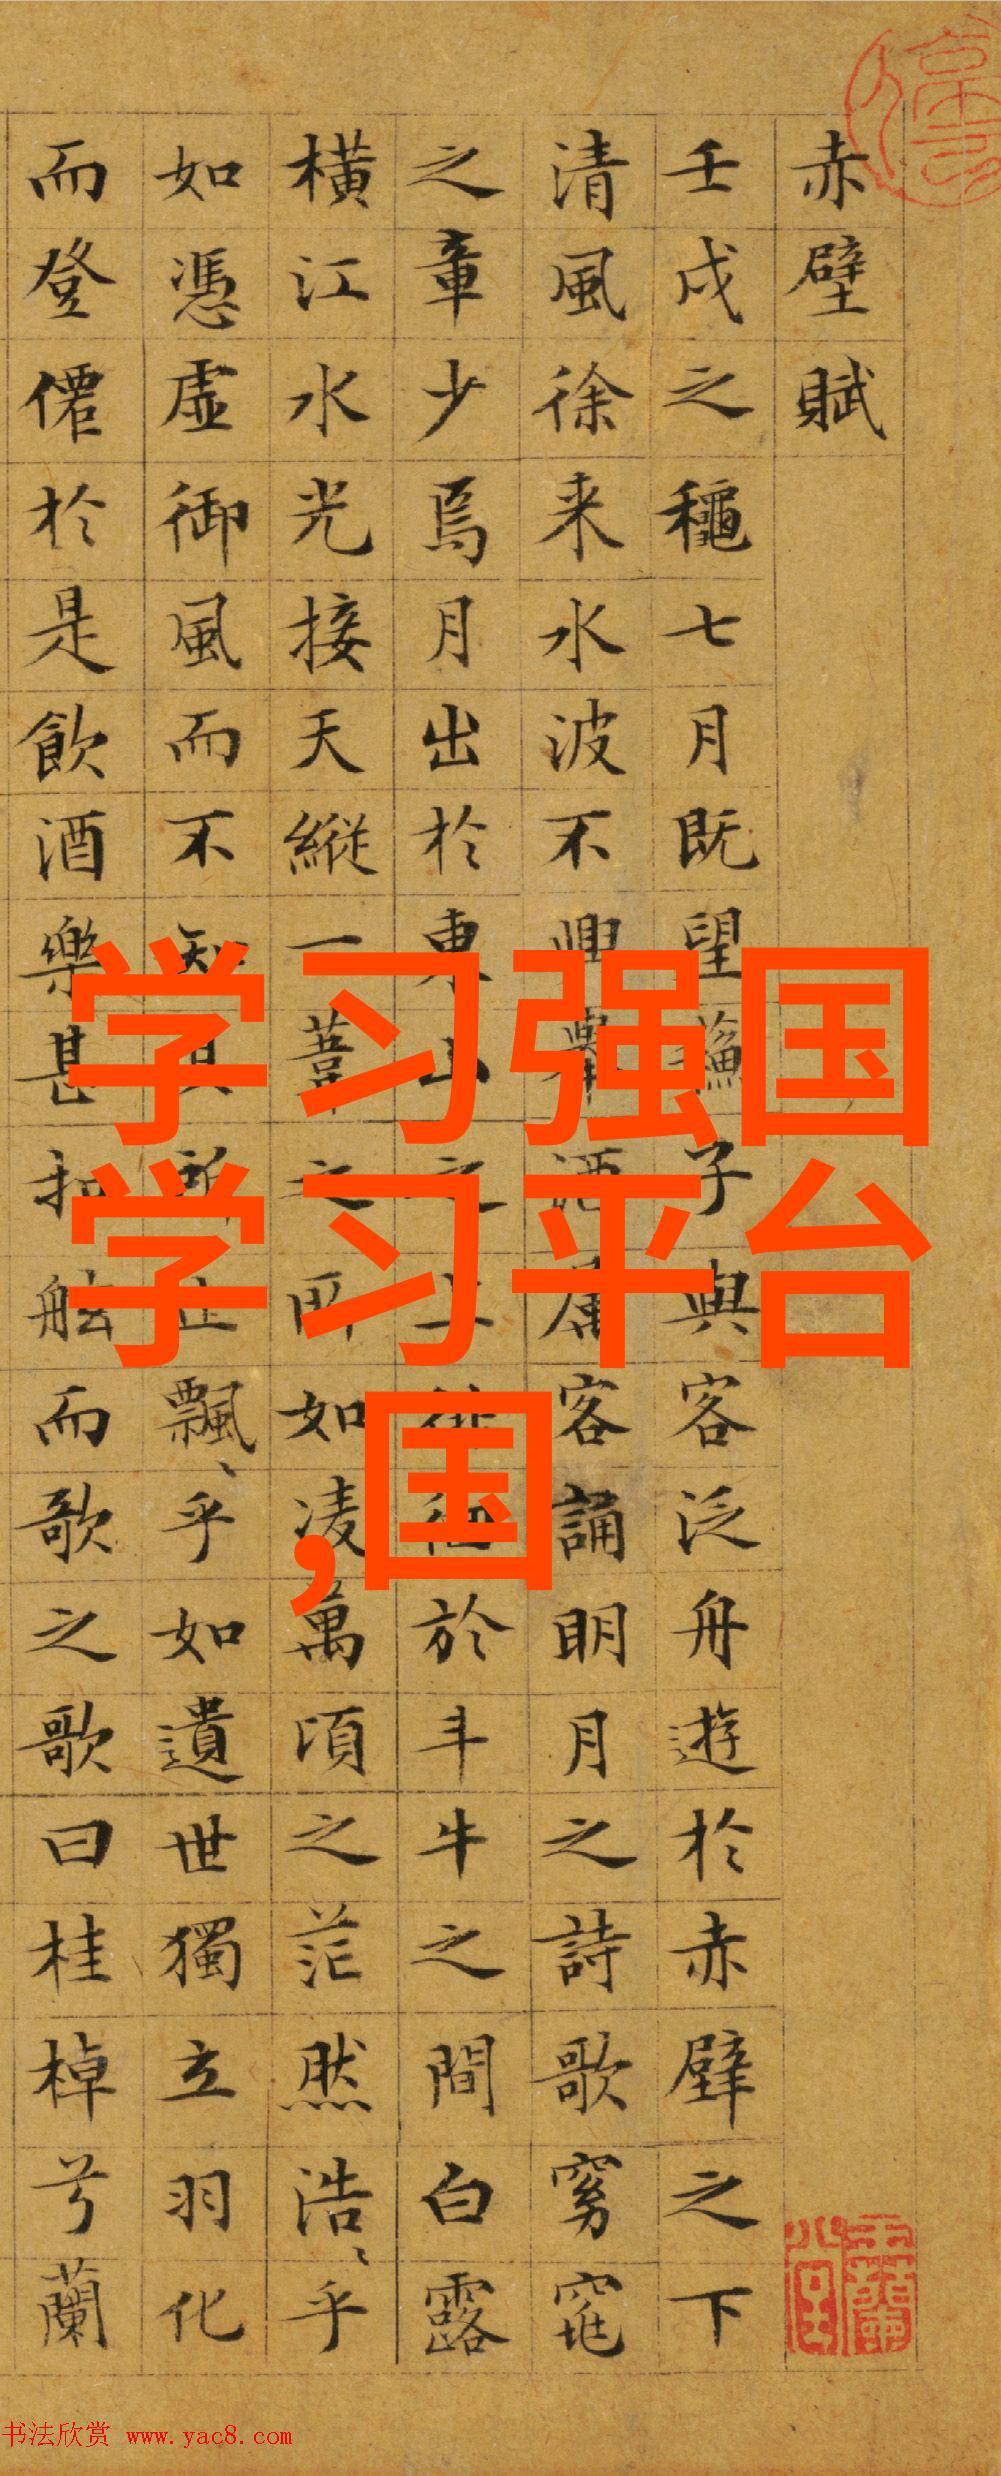 赤壁賦
壬戌之龝七月既望蘓子與客泛舟遊於赤壁之下
清風徐来水波不興舉酒属客誦明月之詩歌窈窕
之章少焉月出於東山之上徘徊於斗牛之間白露
横江水光接天縱一葦之所如凌萬頃之茫然浩〻乎
如憑虛御風而不知其所止飄〻乎如遺世獨立羽化
而登僊於是飲酒樂甚扣舷而歌之歌曰桂棹兮蘭
学习强国
学习平台
,国
书法欣赏 www.yac8.com